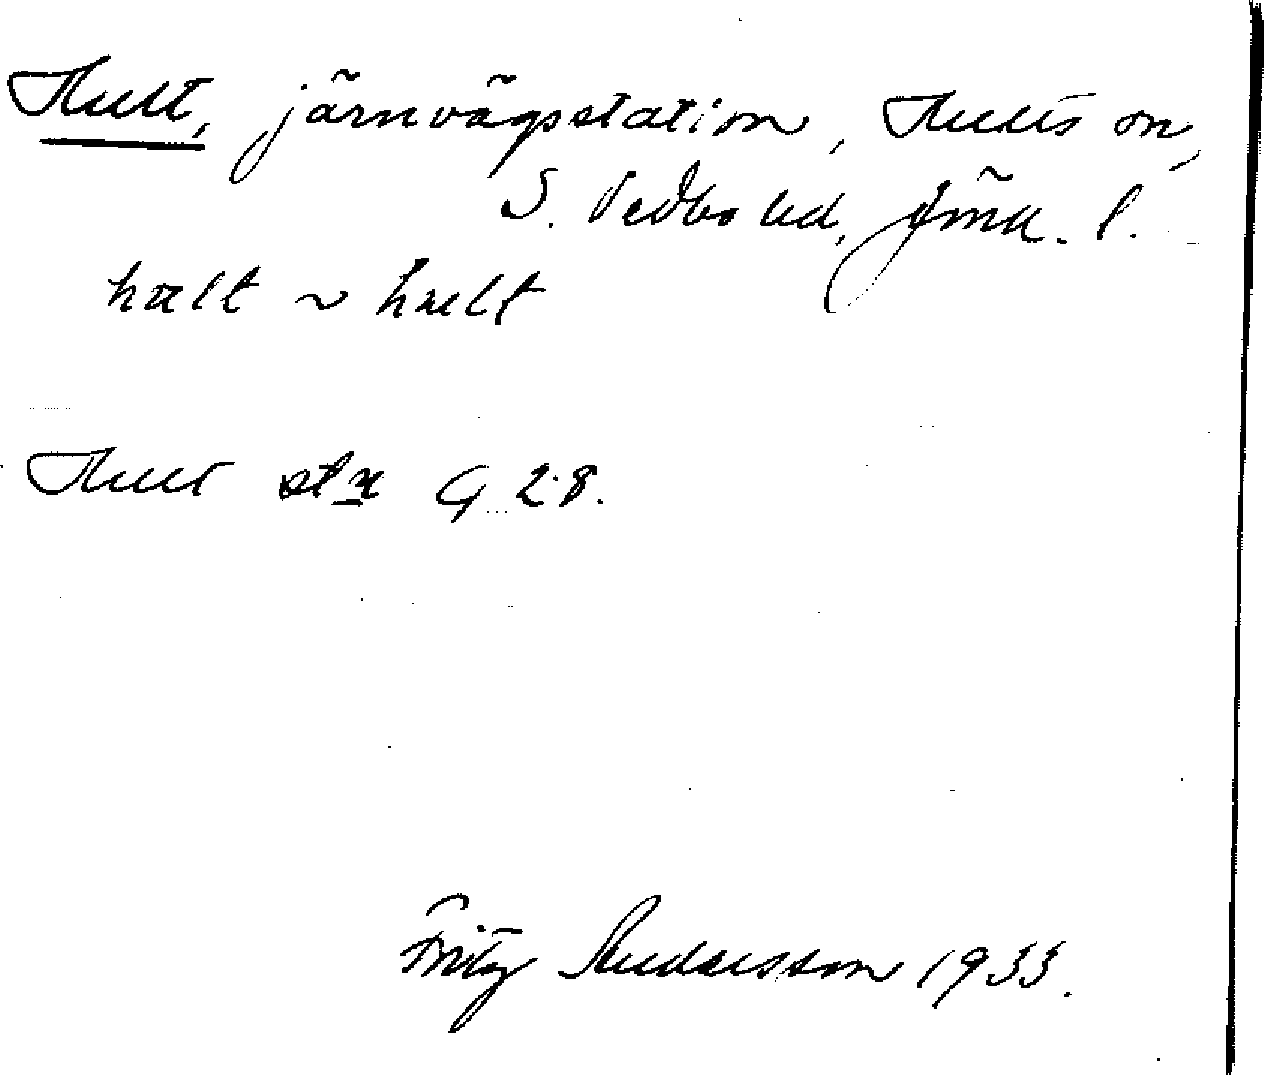 Hult, järnvägsstation, Hults sn,
S. Vedbo hd, Jönk. l.
hult ~ hult
Hult stn G 28.
Fritz Andersson 1933.